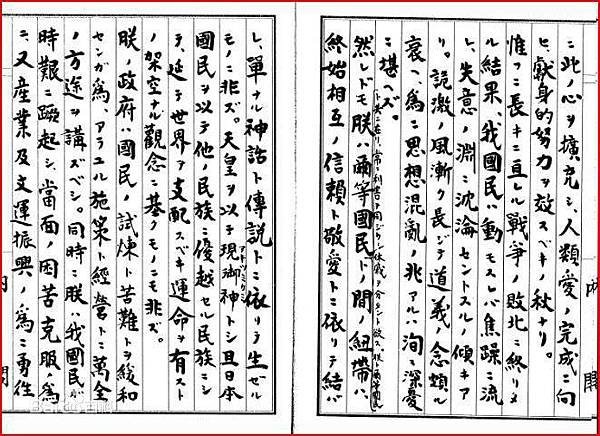 ニ此ノ心ヲ擴充シ、人類愛ノ完成ニ向
ヒ、獻身的努力ヲ效スベキノ秋ナリ。
惟フニ長キニ亘レル戰爭ノ敗北ニ終リタ
ル結果、我國民ハ動モスレバ焦躁ニ流
レ、失意ノ淵ニ沈淪セントスルノ傾キア
リ。詭激ノ風漸ク長ジテ道義ノ念頗ル
衰ヘ、爲ニ思想混亂ノ兆アルハ洵ニ深憂
ニ堪ヘズ。
然レドモ朕ハ爾等國民トノ間ノ紐帶ハ、
ト共ニ在リ、常ニ利害ヲ同ジウシ休戚ヲ分タント欲ス。朕ト爾等國民
終始相互ノ信賴ト敬愛トニ依リテ結バ
內閣
レ、單ナル神話ト傳說トニ依リテ生ゼル
モノニ非ズ。天皇ヲ以テ現御神トシ且日本
アキツミカミ
國民ヲ以テ他ノ民族ニ優越セル民族ニシ
テ、延テ世界ヲ支配スベキ運命ヲ有スト
ノ架空ナル觀念ニ基クモノニモ非ズ。
朕ノ政府ハ國民ノ試煉ト苦難トヲ緩和
センガ爲、アラユル施策ト經營トニ萬全
ノ方途ヲ講ズベシ。同時ニ朕ハ我國民ガ
時艱ニ蹶起シ、當面ノ困苦克服ノ爲
ニ、又產業及文運振興ノ爲ニ勇往
內閣